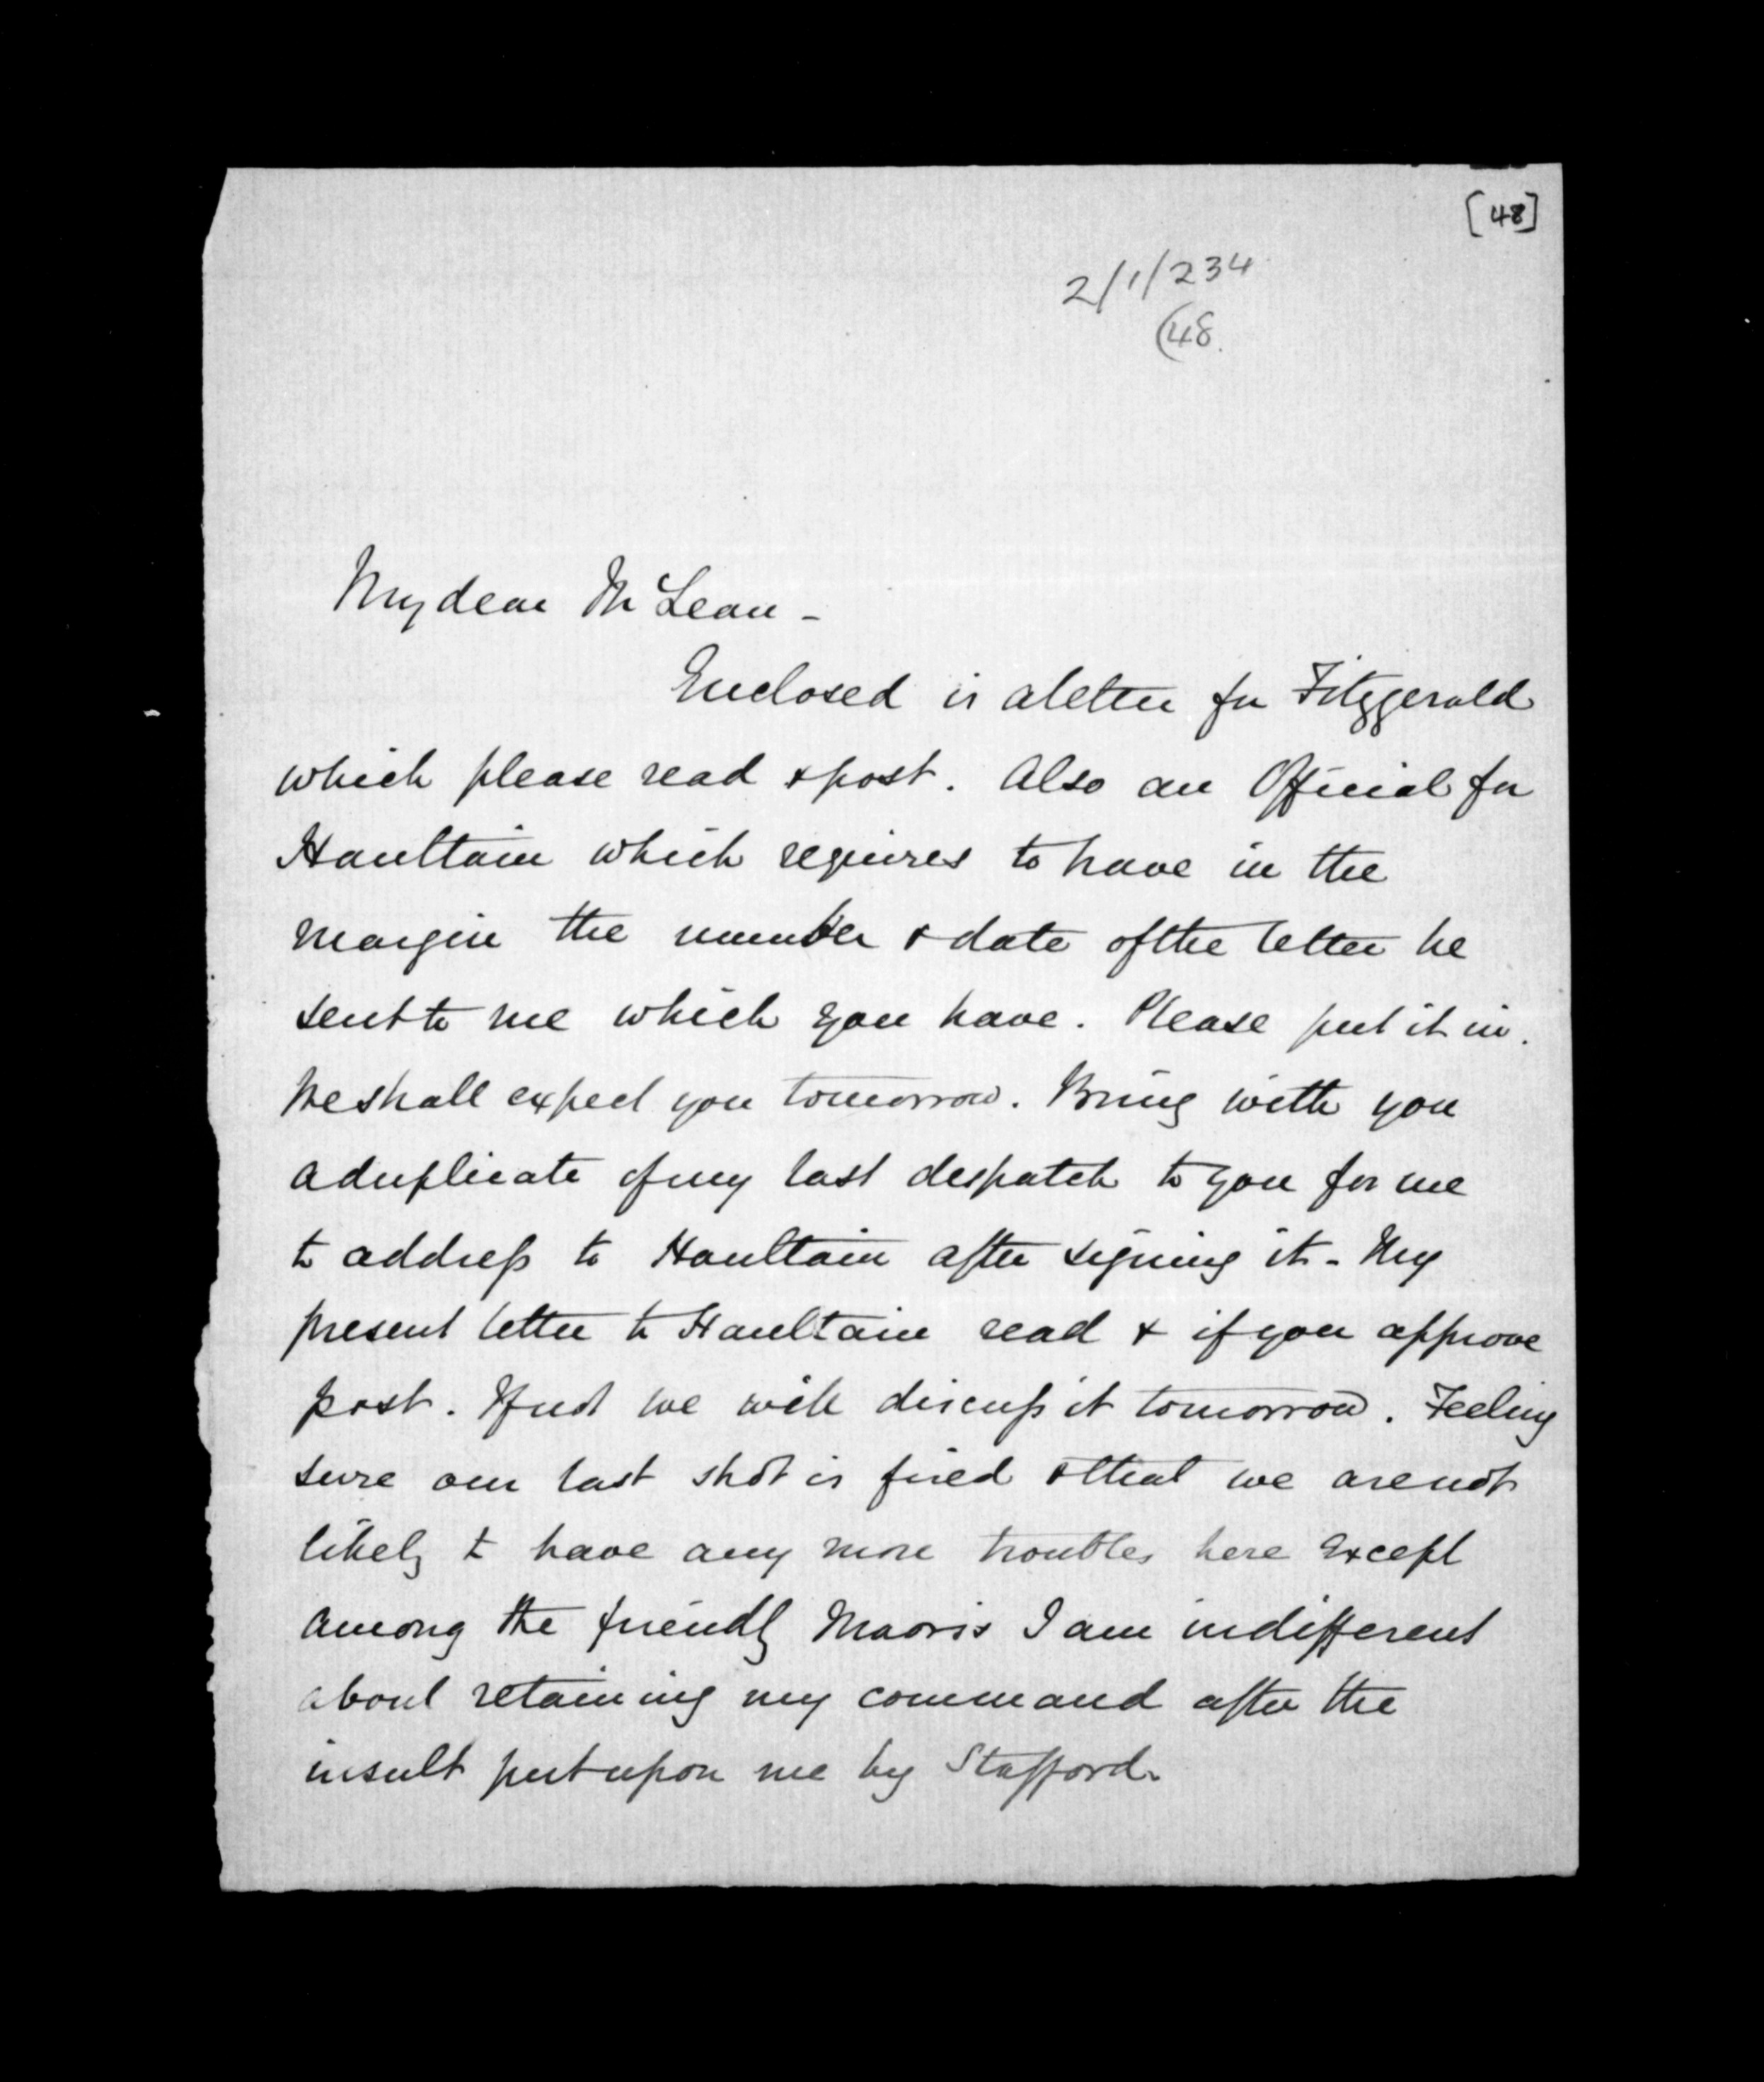 [48]
2/1/234
(48.
My dear McLean -
Enclosed is a letter for Fitzgerald
which please read & post. Also an Official for
Haultain which requires to have in the
margin the number & date of the letter he
sent to me which you have. Please put it in.
We shall expect you tomorrow. Bring with you
a duplicate of my last despatch to you for me
to address to Haultain after signing it - My
present letter to Haultain read & if you approve
post. If not we will discuss it tomorrow. Feeling
sure our last shot is fired & that we are not
likely to have any more troubles here except
among the friendly Maoris I am indifferent
about retaining my command after the
insult put upon me by Stafford.